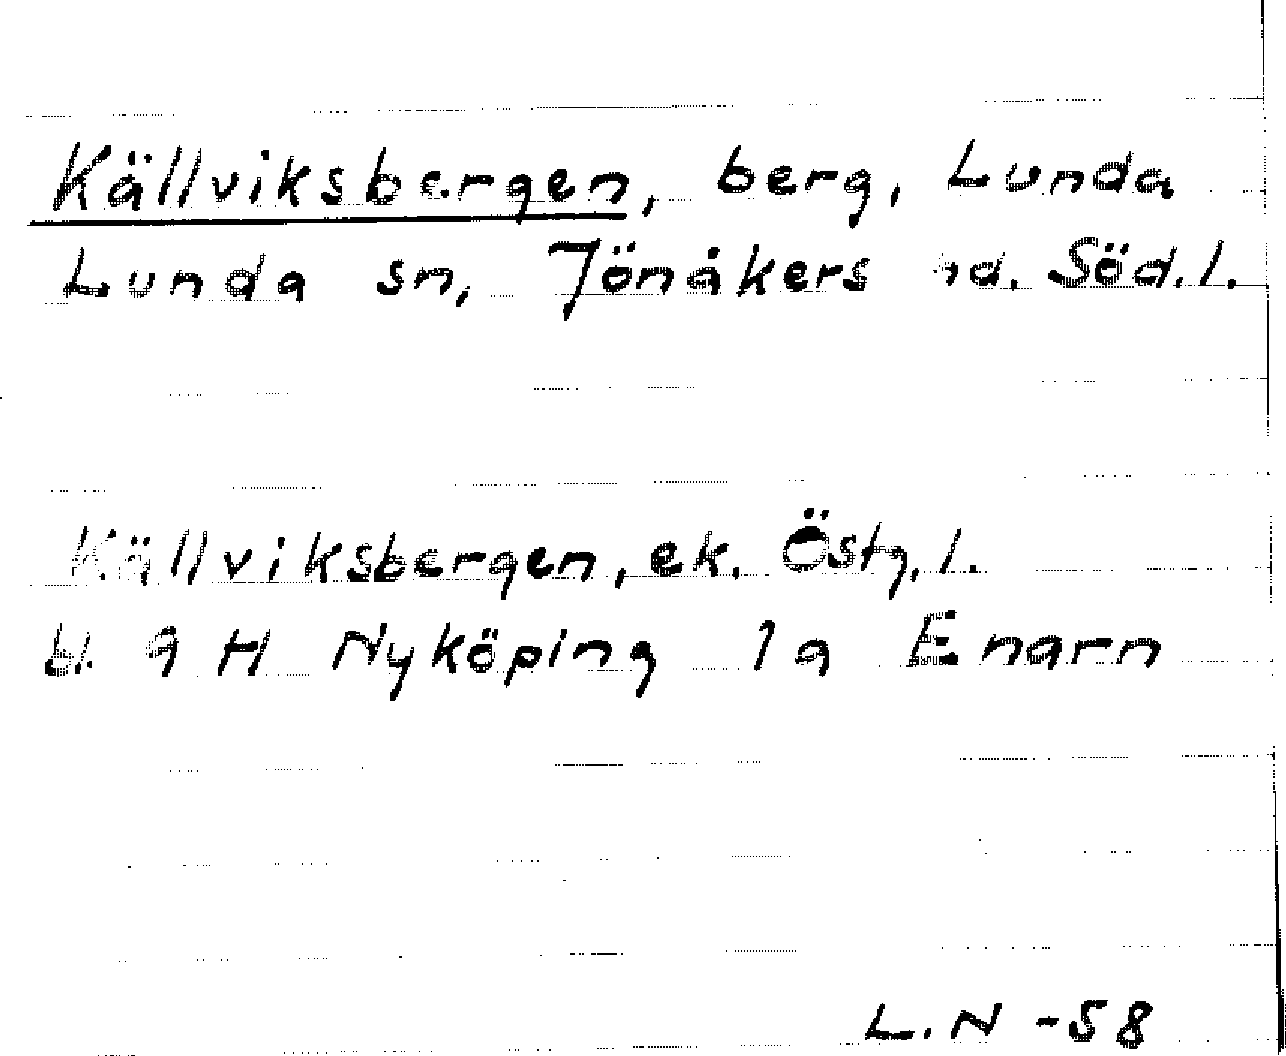 Källviksbergen, berg, Lunda
Lunda sn, Jönåkers hd. Söd.l.
Källviksbergen, ek. Östg.l.
bl. 9 H Nyköping 1a Enarn
L.N -58